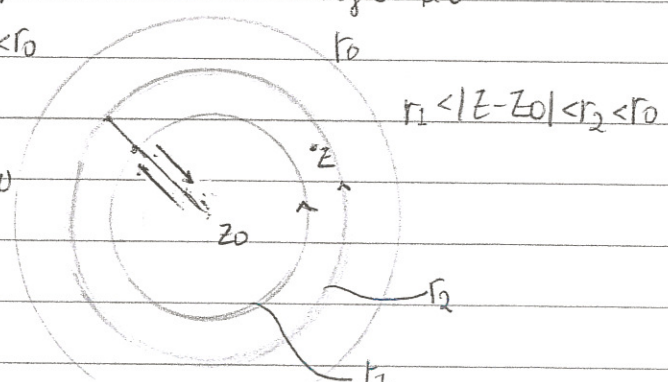 <r0
r0
r1 < |z-z0| < r2 < r0
z
z0
r2
r1